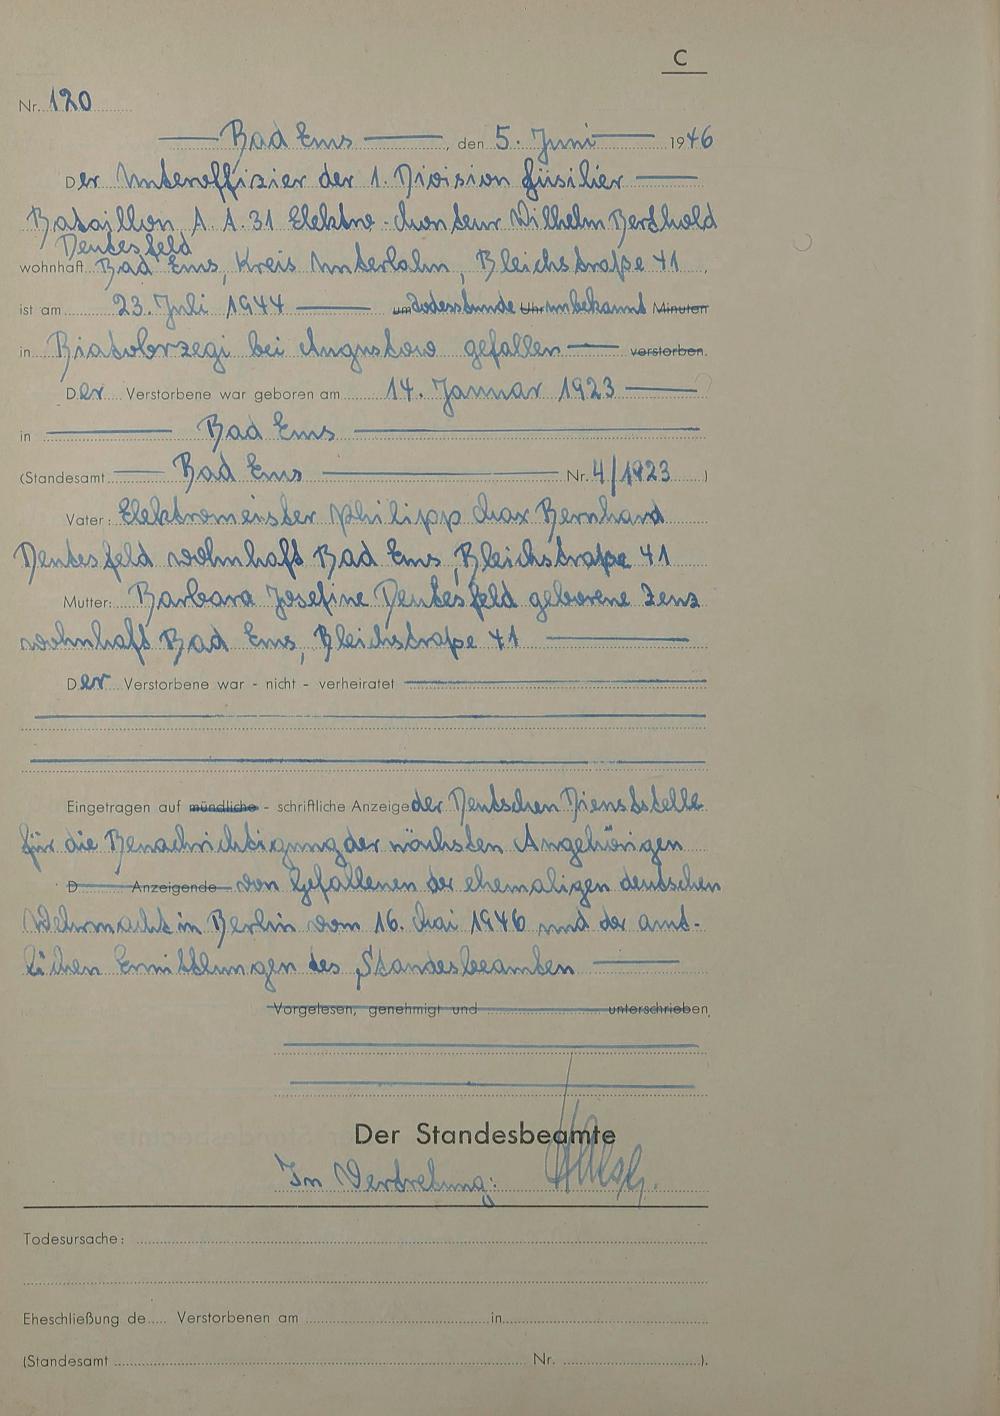 C
Nr. 120
Bad Ems, den 5. Juni 1946
Der Unteroffizier der 1. Division füsilier
Bataillon A. A. 31 Elektro-Monteur Wilhelm Berthold
Deutesfeld
wohnhaft Bad Ems, Kreis Unterlahn, Bleichstraße 41,
ist am 23. Juli 1944 um Todesstunde Uhr unbekannt Minuten
in Biatobrzegi bei Augustow gefallen verstorben.
Der Verstorbene war geboren am 14. Januar 1923
in Bad Ems
(Standesamt Bad Ems Nr. 4/1923)
Vater: Elektromeister Philipp Max Bernhard
Deutesfeld wohnhaft Bad Ems, Bleichstraße 41
Mutter: Barbara Josefine Deutesfeld geborene Zenz
wohnhaft Bad Ems, Bleichstraße 41
Der Verstorbene war - nicht - verheiratet
Eingetragen auf mündliche - schriftliche Anzeige der Deutschen Dienststelle
für die Benachrichtigung der nächsten Angehörigen
D Anzeigende von Gefallenen der ehemaligen deutschen
Wehrmacht in Berlin vom 16. Mai 1946 und der amt-
lichen Ermittlungen des Standesbeamten
Vorgelesen, genehmigt und unterschrieben
Der Standesbeamte
In Vertretung:
Todesursache:
Eheschließung de Verstorbenen am in
(Standesamt Nr. ).